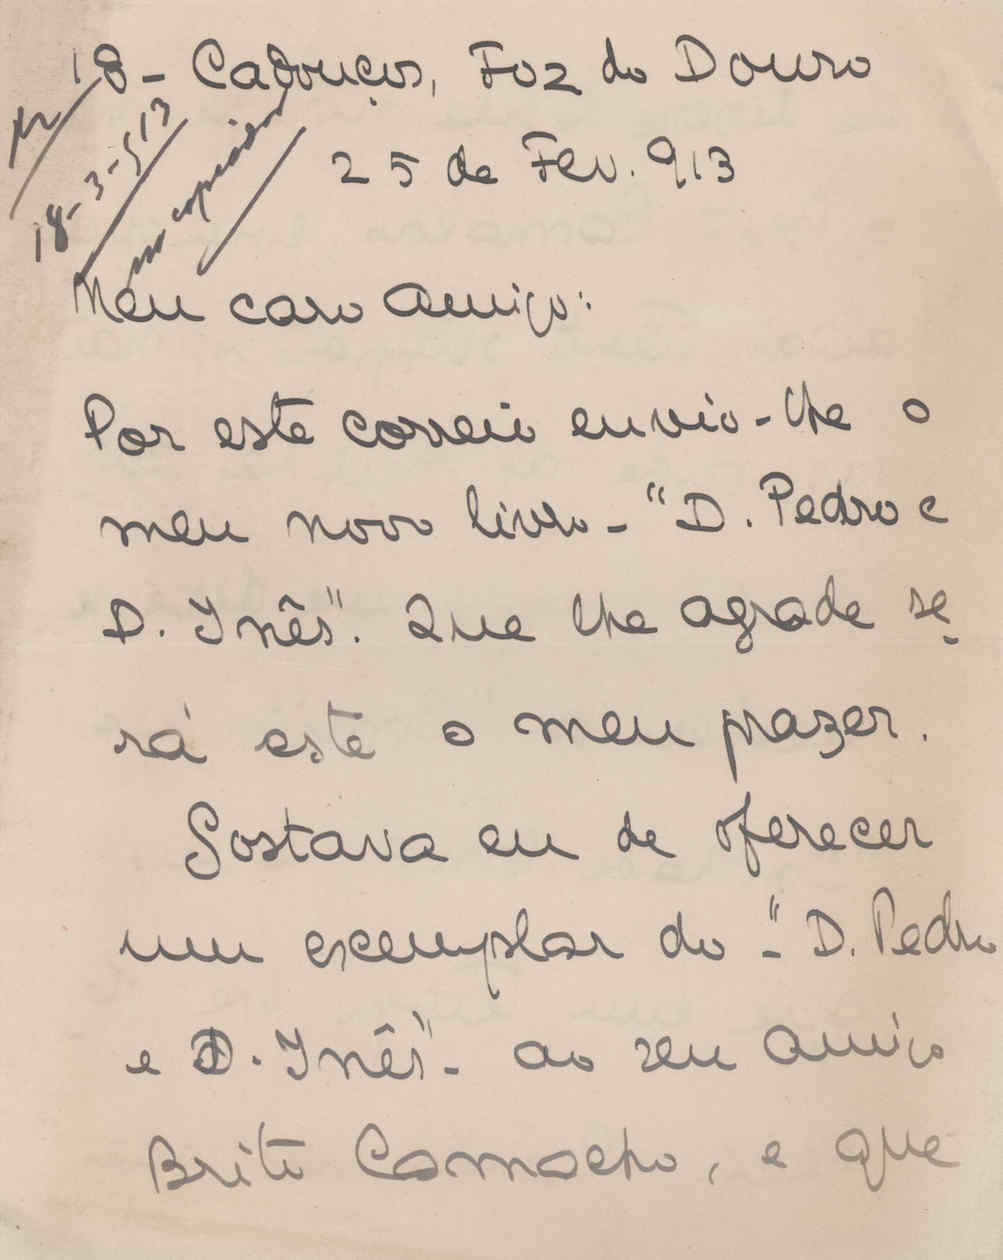 18 - Cadouços, Foz do Douro
18-3-913
no copiador
25 de Fev. 913
Meu caro Amigo:
Por este correio envio-lhe o
meu novo livro - "D. Pedro e
D. Inês". Que lhe agrade se
rá este o meu prazer.
Gostava eu de oferecer
um exemplar do - "D. Pedro
e D. Inês" - ao seu amigo
Brito Camacho, e que